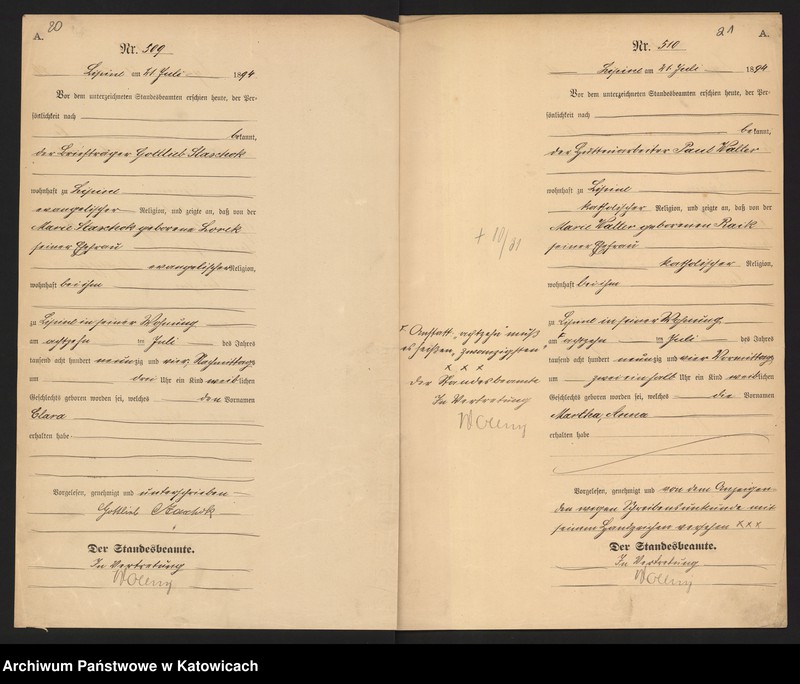 20
A.
Nr. 509
Lipine am 21. Juli 1894
Vor dem unterzeichneten Standesbeamten erschien heute, der Per-
sönlichkeit nach
bekannt,
der Briefträger Gottlieb
wohnhaft zu Lipine
evangelischer Religion, und zeigte an, daß von der
Marie geborene
seiner Ehefrau
evangelischer Religion,
wohnhaft bei ihm
zu Lipine in seiner Wohnung
am achtzehn ten Juli des Jahres
tausend acht hundert neunzig und vier Nachmittags
um drei Uhr ein Kind weiblichen
Geschlechts geboren worden sei, welches den Vornamen
Clara
erhalten habe.
Vorgelesen, genehmigt und unterschrieben
Gottlieb
Der Standesbeamte.
In Vertretung
Woleny
21
A.
Nr. 510
Lipine am 21. Juli 1894
Vor dem unterzeichneten Standesbeamten erschien heute, der Per-
sönlichkeit nach
bekannt,
der Hüttenarbeiter Paul Walter
wohnhaft zu Lipine
katholischer Religion, und zeigte an, daß von der
Marie Walter geborenen
seiner Ehefrau
katholischer Religion,
wohnhaft bei ihm
zu Lipine in seiner Wohnung
am achtzehn ten Juli des Jahres
tausend acht hundert neunzig und vier Vormittags
um zwei einhalb Uhr ein Kind weiblichen
Geschlechts geboren worden sei, welches die Vornamen
Martha, Anna
erhalten habe
Vorgelesen, genehmigt und von dem Anzeigen-
den wegen Schreibensunkunde mit
seinem Handzeichen versehen x x x
Der Standesbeamte.
In Vertretung
Woleny
Anstatt "achtzehn" muß
es heißen, "zwanzigsten"
x x x
Der Standesbeamte
In Vertretung
Woleny
Archiwum Państwowe w Katowicach